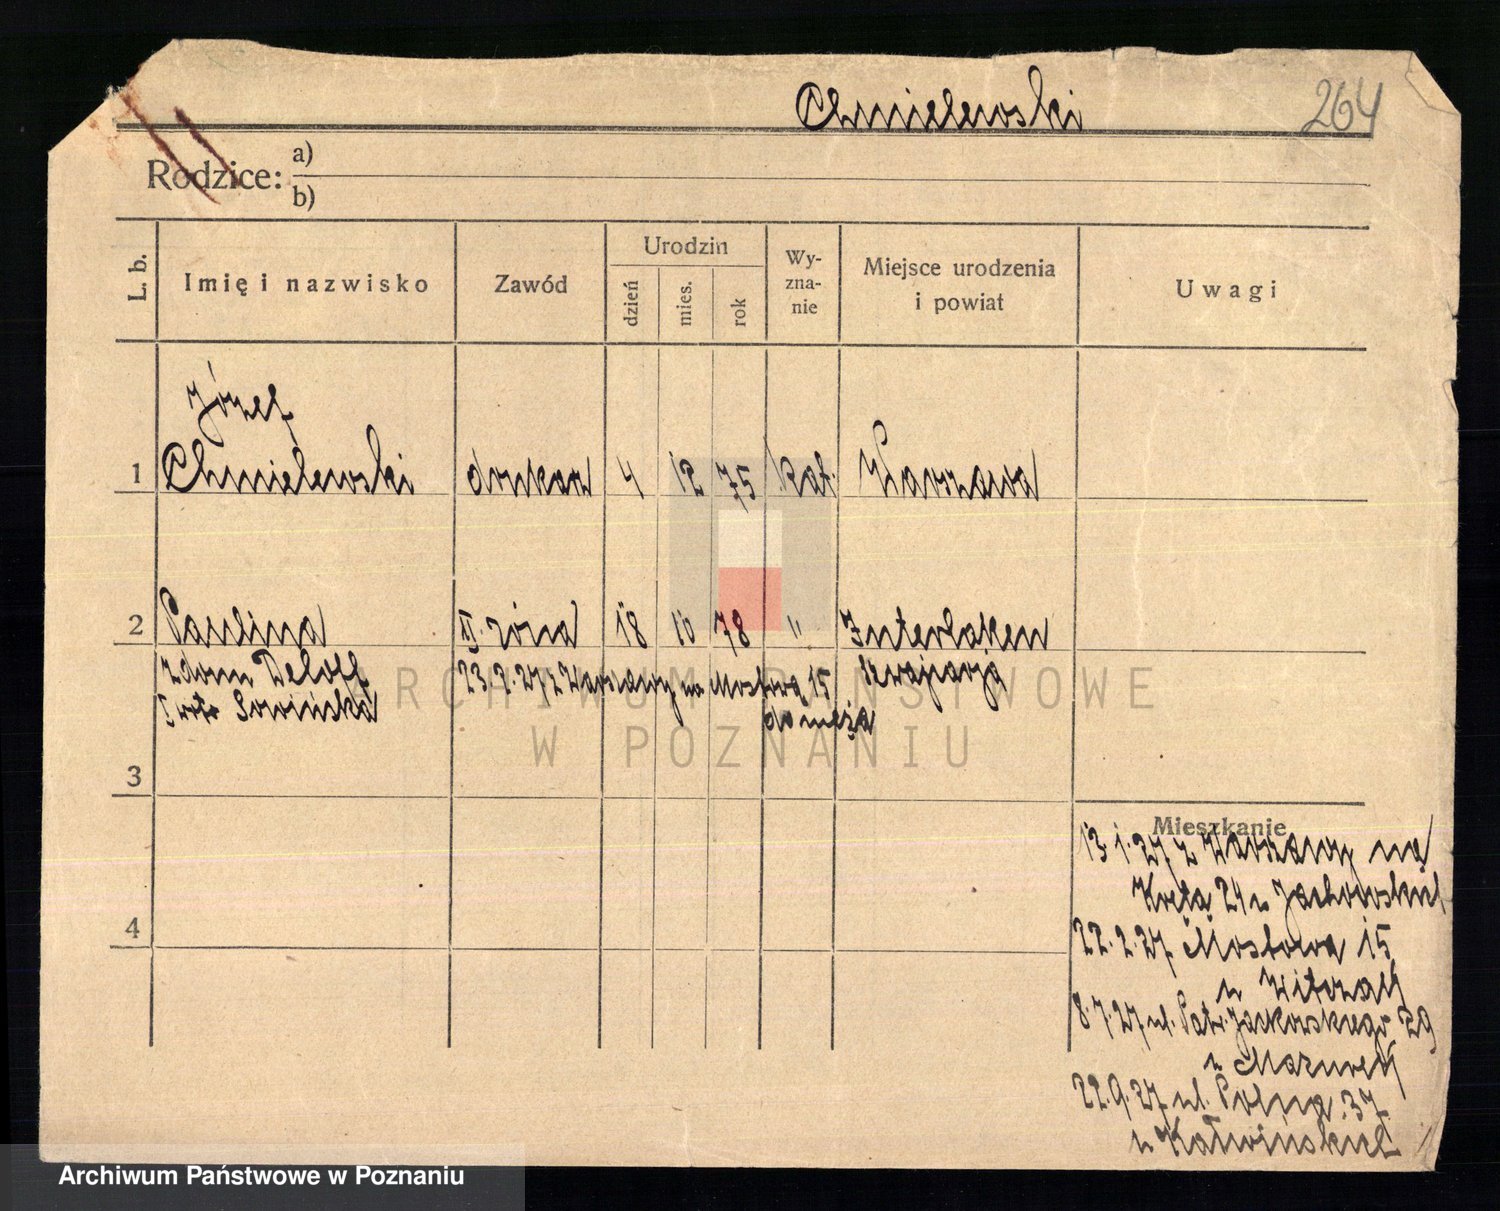 Chmielewski 264
Rodzice: a)
b)
L. b. Imię i nazwisko Zawód Urodzin dzień mies. rok Wy-zna-nie Miejsce urodzenia i powiat Uwagi
Józef
1 Chmielewski drukarz 4 12 75 kat. Warszawa
2 Paulina II. żona 18 10 78 " Interlaken
z dom Deloff 23. 2. 27 z Warszawy na Mostową 15 Szwajcarja
Sowińska do męża
3
Mieszkanie
13. 1. 27 z Warszawy na
Kręta 24 u Jachowskich
4
22. 2. 27 Mostowa 15
u Witczak
8. 7. 27 ul. Patr. Jackowskiego 29
u Mazurek
22. 9. 27 ul. Polna 37
u Kałwińskich
ARCHIWUM PAŃSTWOWE
W POZNANIU
Archiwum Państwowe w Poznaniu